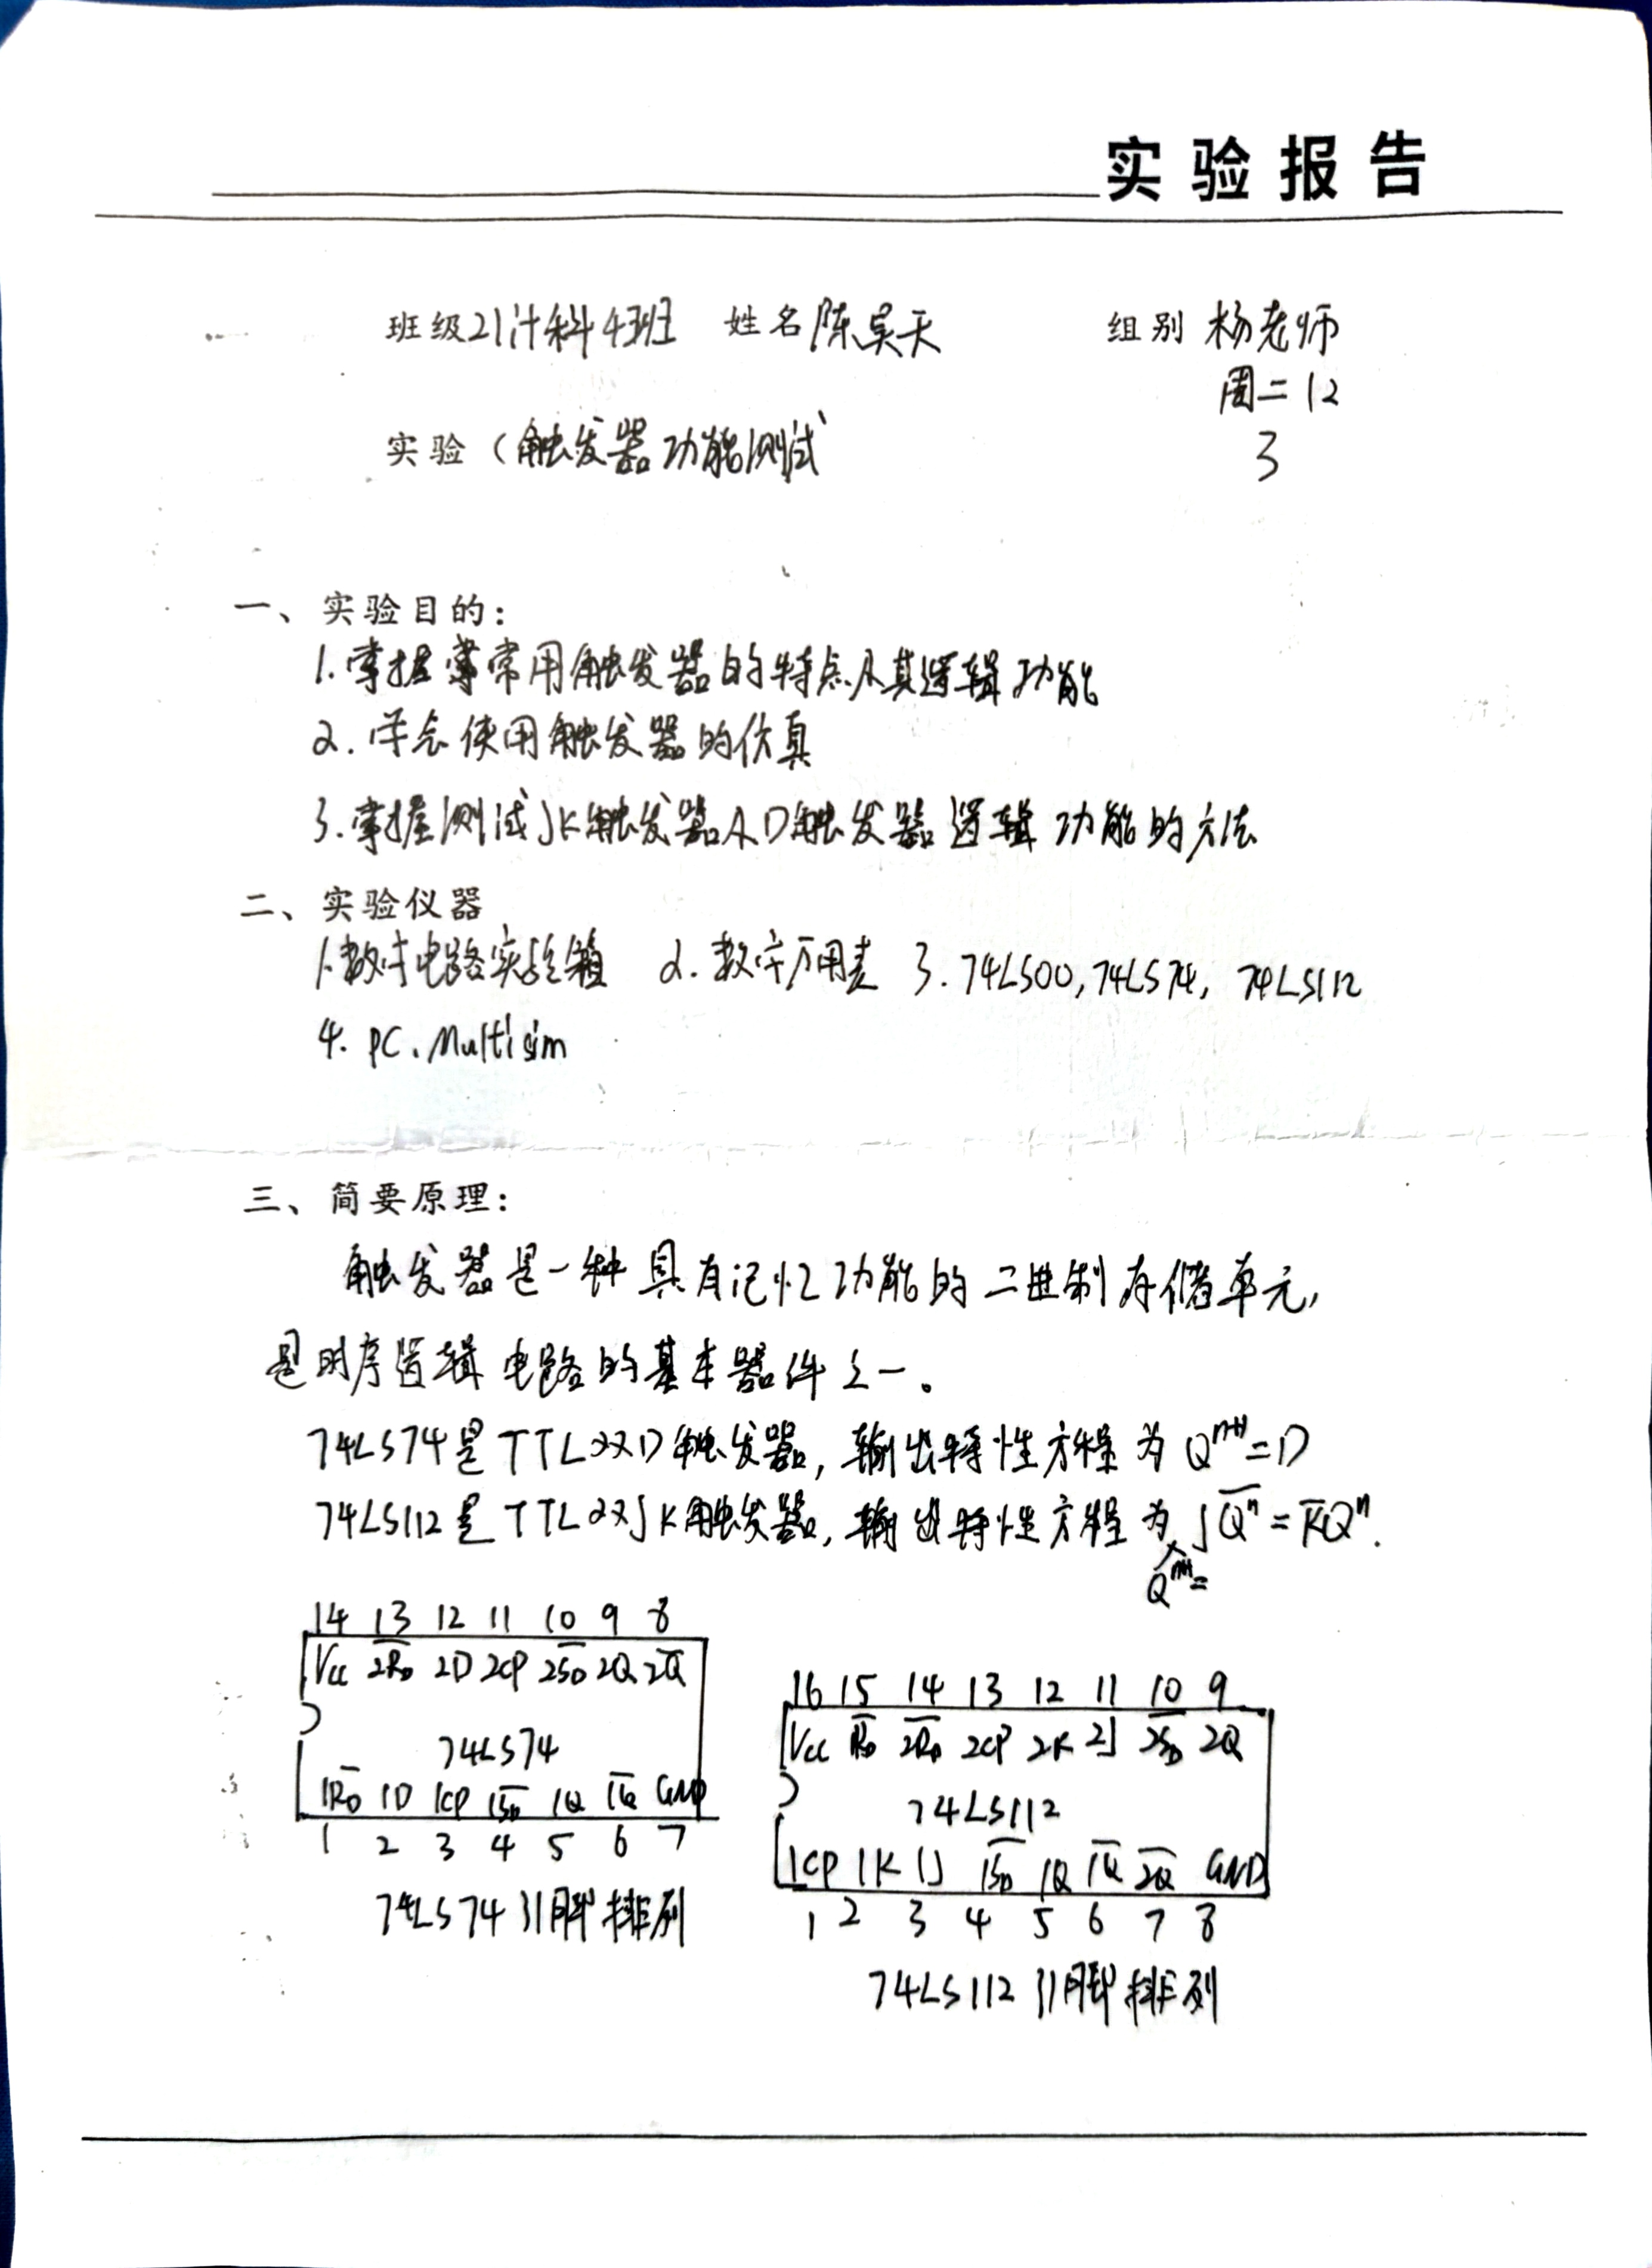 实验报告
班级21计科4班 姓名陈昊天 组别 杨老师
周二 12
实验(触发器功能测试 3
一、实验目的:
1.掌握常用触发器的特点及其逻辑功能
2.学会使用触发器的仿真
3.掌握测试JK触发器及D触发器逻辑功能的方法
二、实验仪器
1.数字电路实验箱 2.数字万用表 3.74LS00,74LS74, 74LS112
4. PC、Multisim
三、简要原理:
触发器是一种具有记忆功能的二进制存储单元,
是时序逻辑电路的基本器件之一。
74LS74是TTL双D触发器,输出特性方程为Qⁿ⁺¹=D
74LS112是TTL双JK触发器,输出特性方程为 JQ̅ⁿ = K̅Qⁿ.
Qⁿ⁺¹=
14 13 12 11 10 9 8
Vcc 2R̅D 2D 2CP 2S̅D 2Q 2Q̅
74LS74
1R̅D 1D 1CP 1S̅D 1Q 1Q̅ GND
1 2 3 4 5 6 7
74LS74引脚排列
16 15 14 13 12 11 10 9
Vcc R̅D 2R̅D 2CP 2K 2J 2S̅D 2Q
74LS112
1CP 1K 1J 1S̅D 1Q 1Q̅ 2Q̅ GND
1 2 3 4 5 6 7 8
74LS112 引脚排列